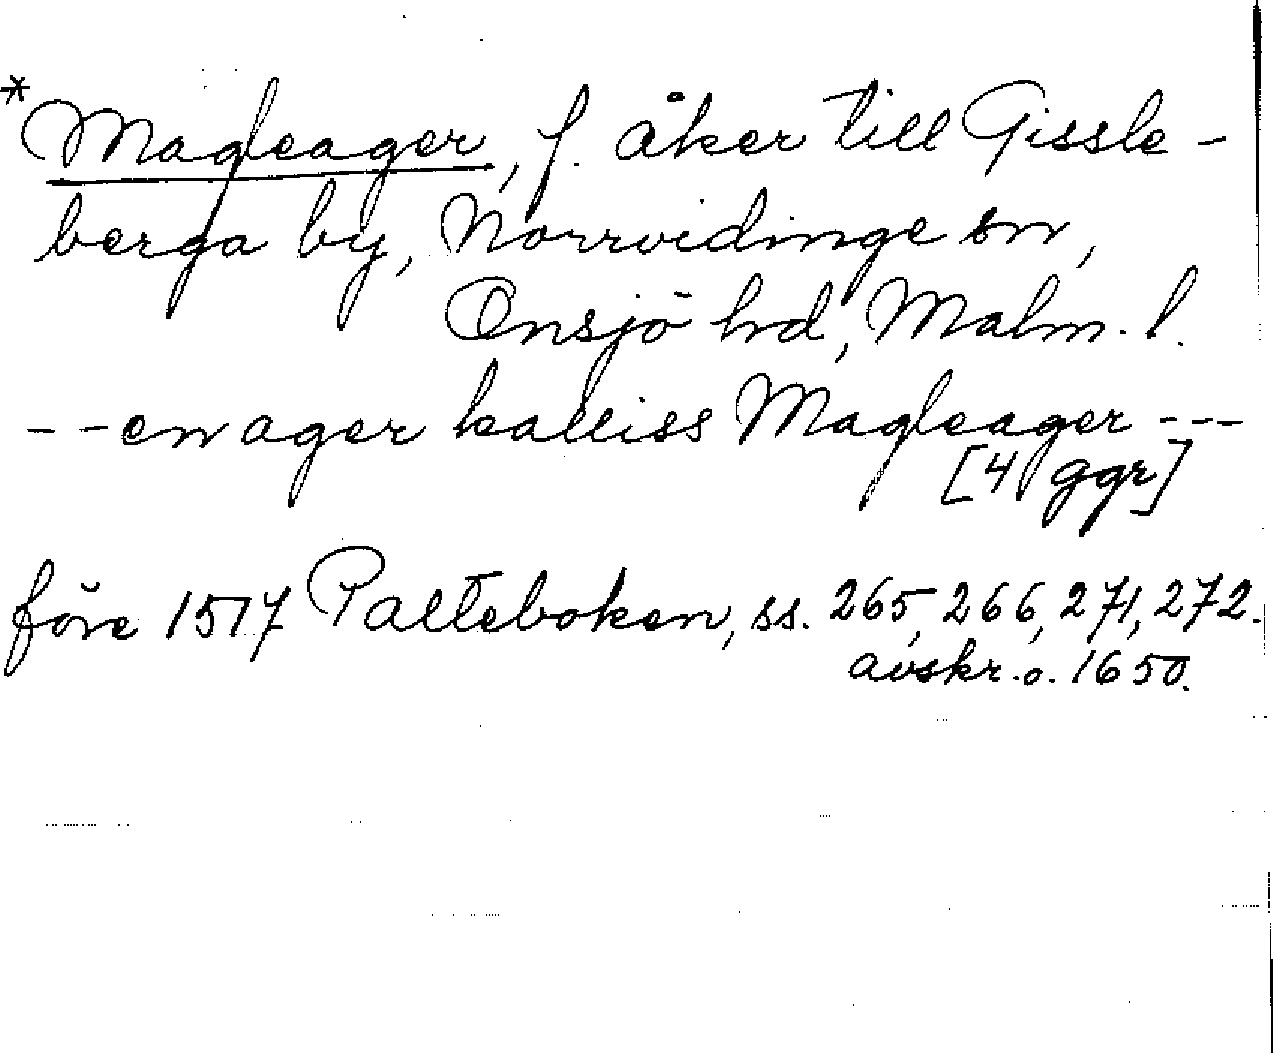 *Magleager, f. åker till Gissle-
berga by, Norrvidinge sn,
Onsjö hd, Malm. l.
- - en ager kalliss Magleager - - -
[4 ggr]
före 1517 Palteboken, ss. 265, 266, 271, 272.
avskr. o. 1650.